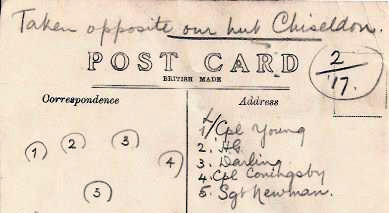 Taken opposite our hut Chiseldon.
POST CARD
BRITISH MADE
2/'17.
Correspondence
Address
1 2 3 4 5
1 L/Cpl Young
2. HG.
3. Darling.
4. Cpl Coningsby
5. Sgt Newman.